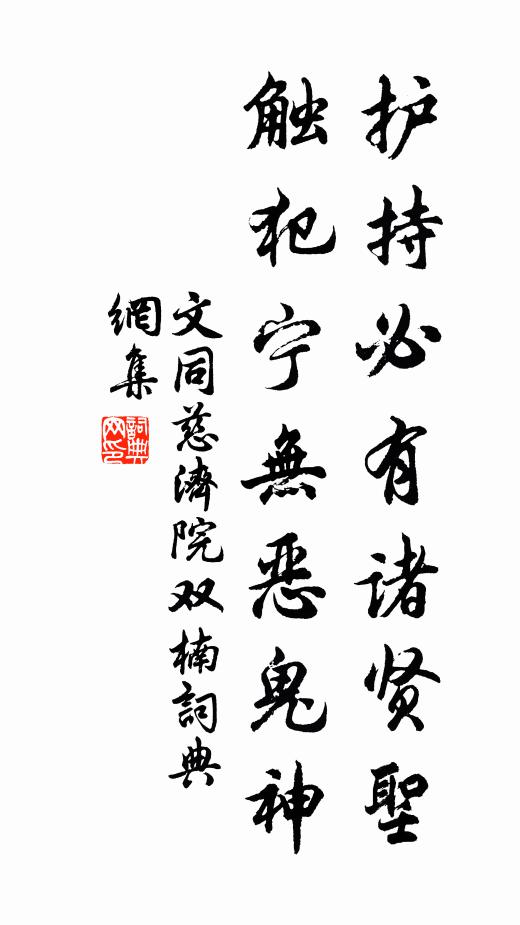 护持必有诸贤聖
触犯宁無恶鬼神
文同慈濟院双楠詞典
網集
詞典
网印